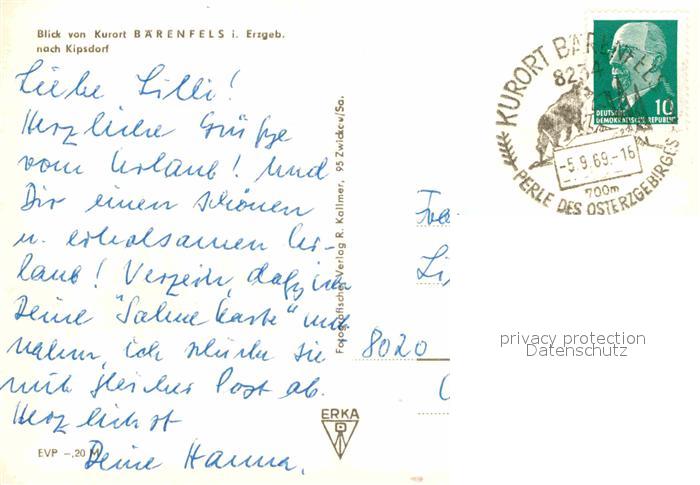 Blick von Kurort BÄRENFELS i. Erzgeb.
nach Kipsdorf
Liebe Lilli!
Herzliche Grüße
vom Urlaub! Und
Dir einen schönen
u. erholsamen Ur-
laub! Verzeih, daß ich
Deine "Sahne karte" mit
nahm, ich schicke sie
mit gleicher Post ab.
Herzlichst
Deine Hanna.
EVP -,20 M
Fotografischer Verlag R. Kallmer, 95 Zwickau/Sa.
ERKA
KURORT BÄRENFELS
8234
-5.9.69.-16
700m
PERLE DES OSTERZGEBIRGES
10
DEUTSCHE
DEMOKRATISCHE REPUBLIK
8020
privacy protection
Datenschutz